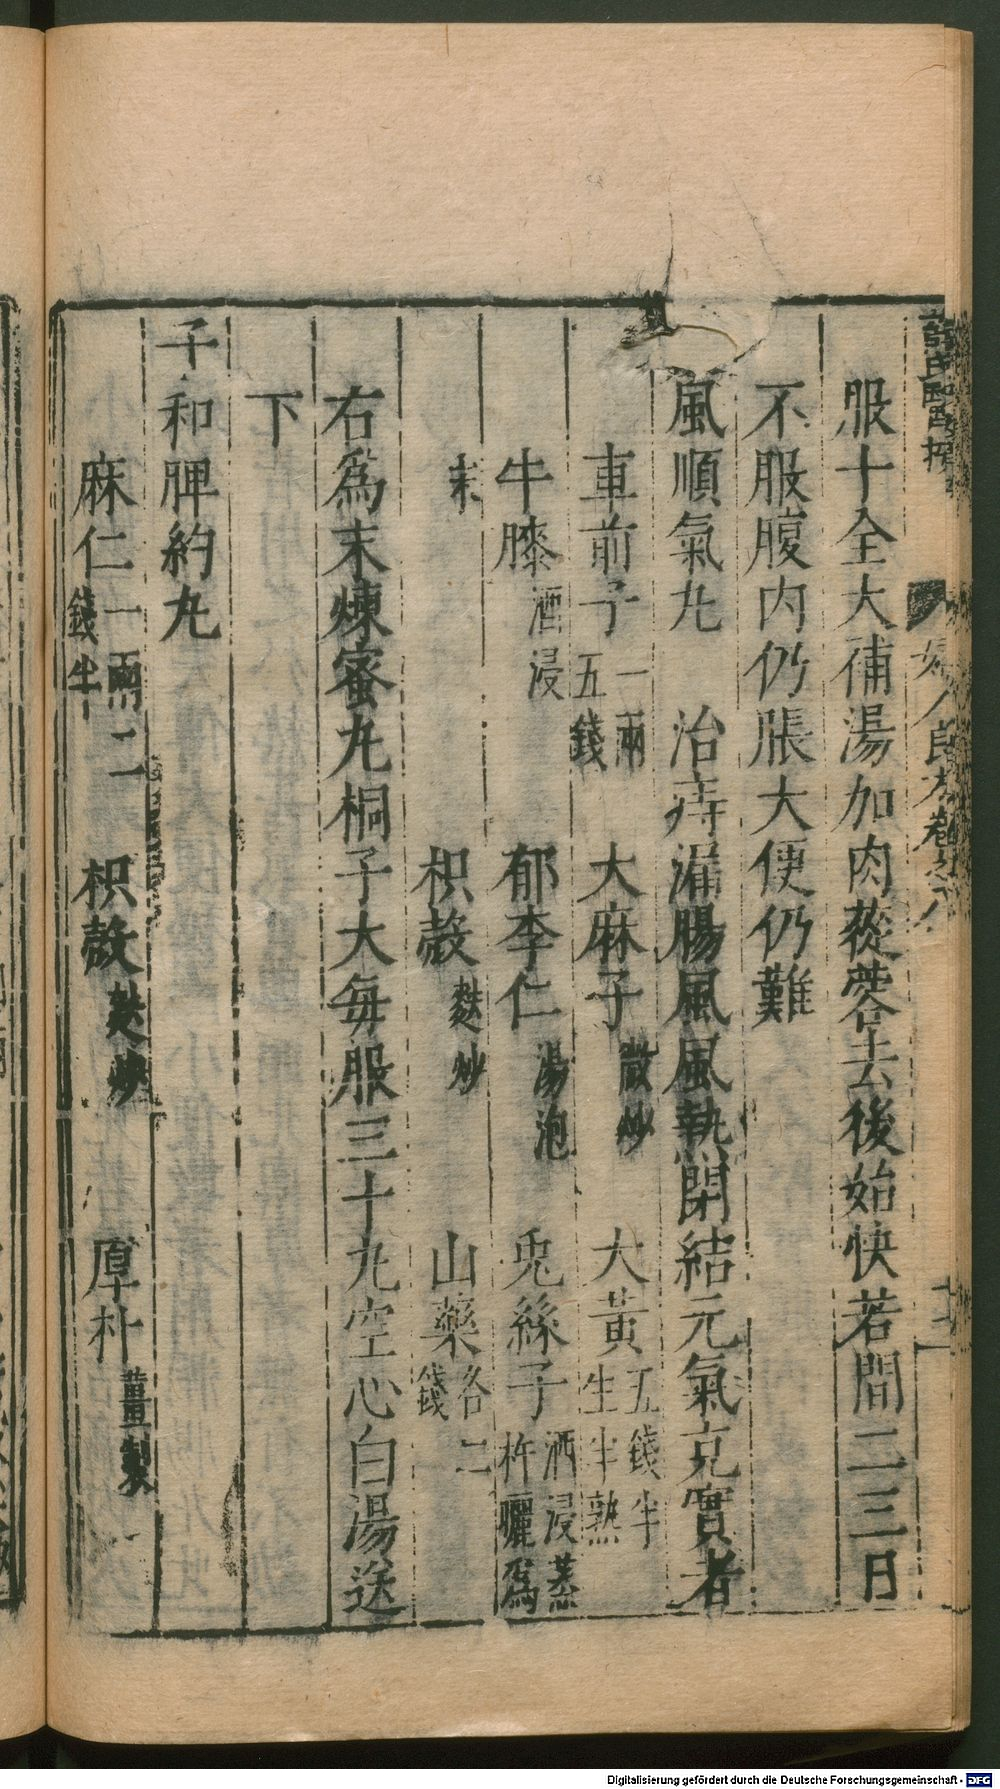 服十全大補湯加肉蓯蓉去後始快若間二三日
不服腹内仍脹大便仍難
風順氣九　治痔漏腸風風熱閉結元氣充實者
車前子一兩五錢　大麻子微炒　大黃五錢半生半熟
牛膝酒浸　郁李仁湯泡　兎絲子酒浸蒸杵曬爲
末　枳殼麩炒　山藥各二錢
右爲末煉蜜九桐子大每服三十九空心白湯送
下
子和脾約丸
麻仁一兩二錢半　枳殼麩炒　厚朴薑製
婦人良方卷之八
Digitalisierung gefördert durch die Deutsche Forschungsgemeinschaft - DFG